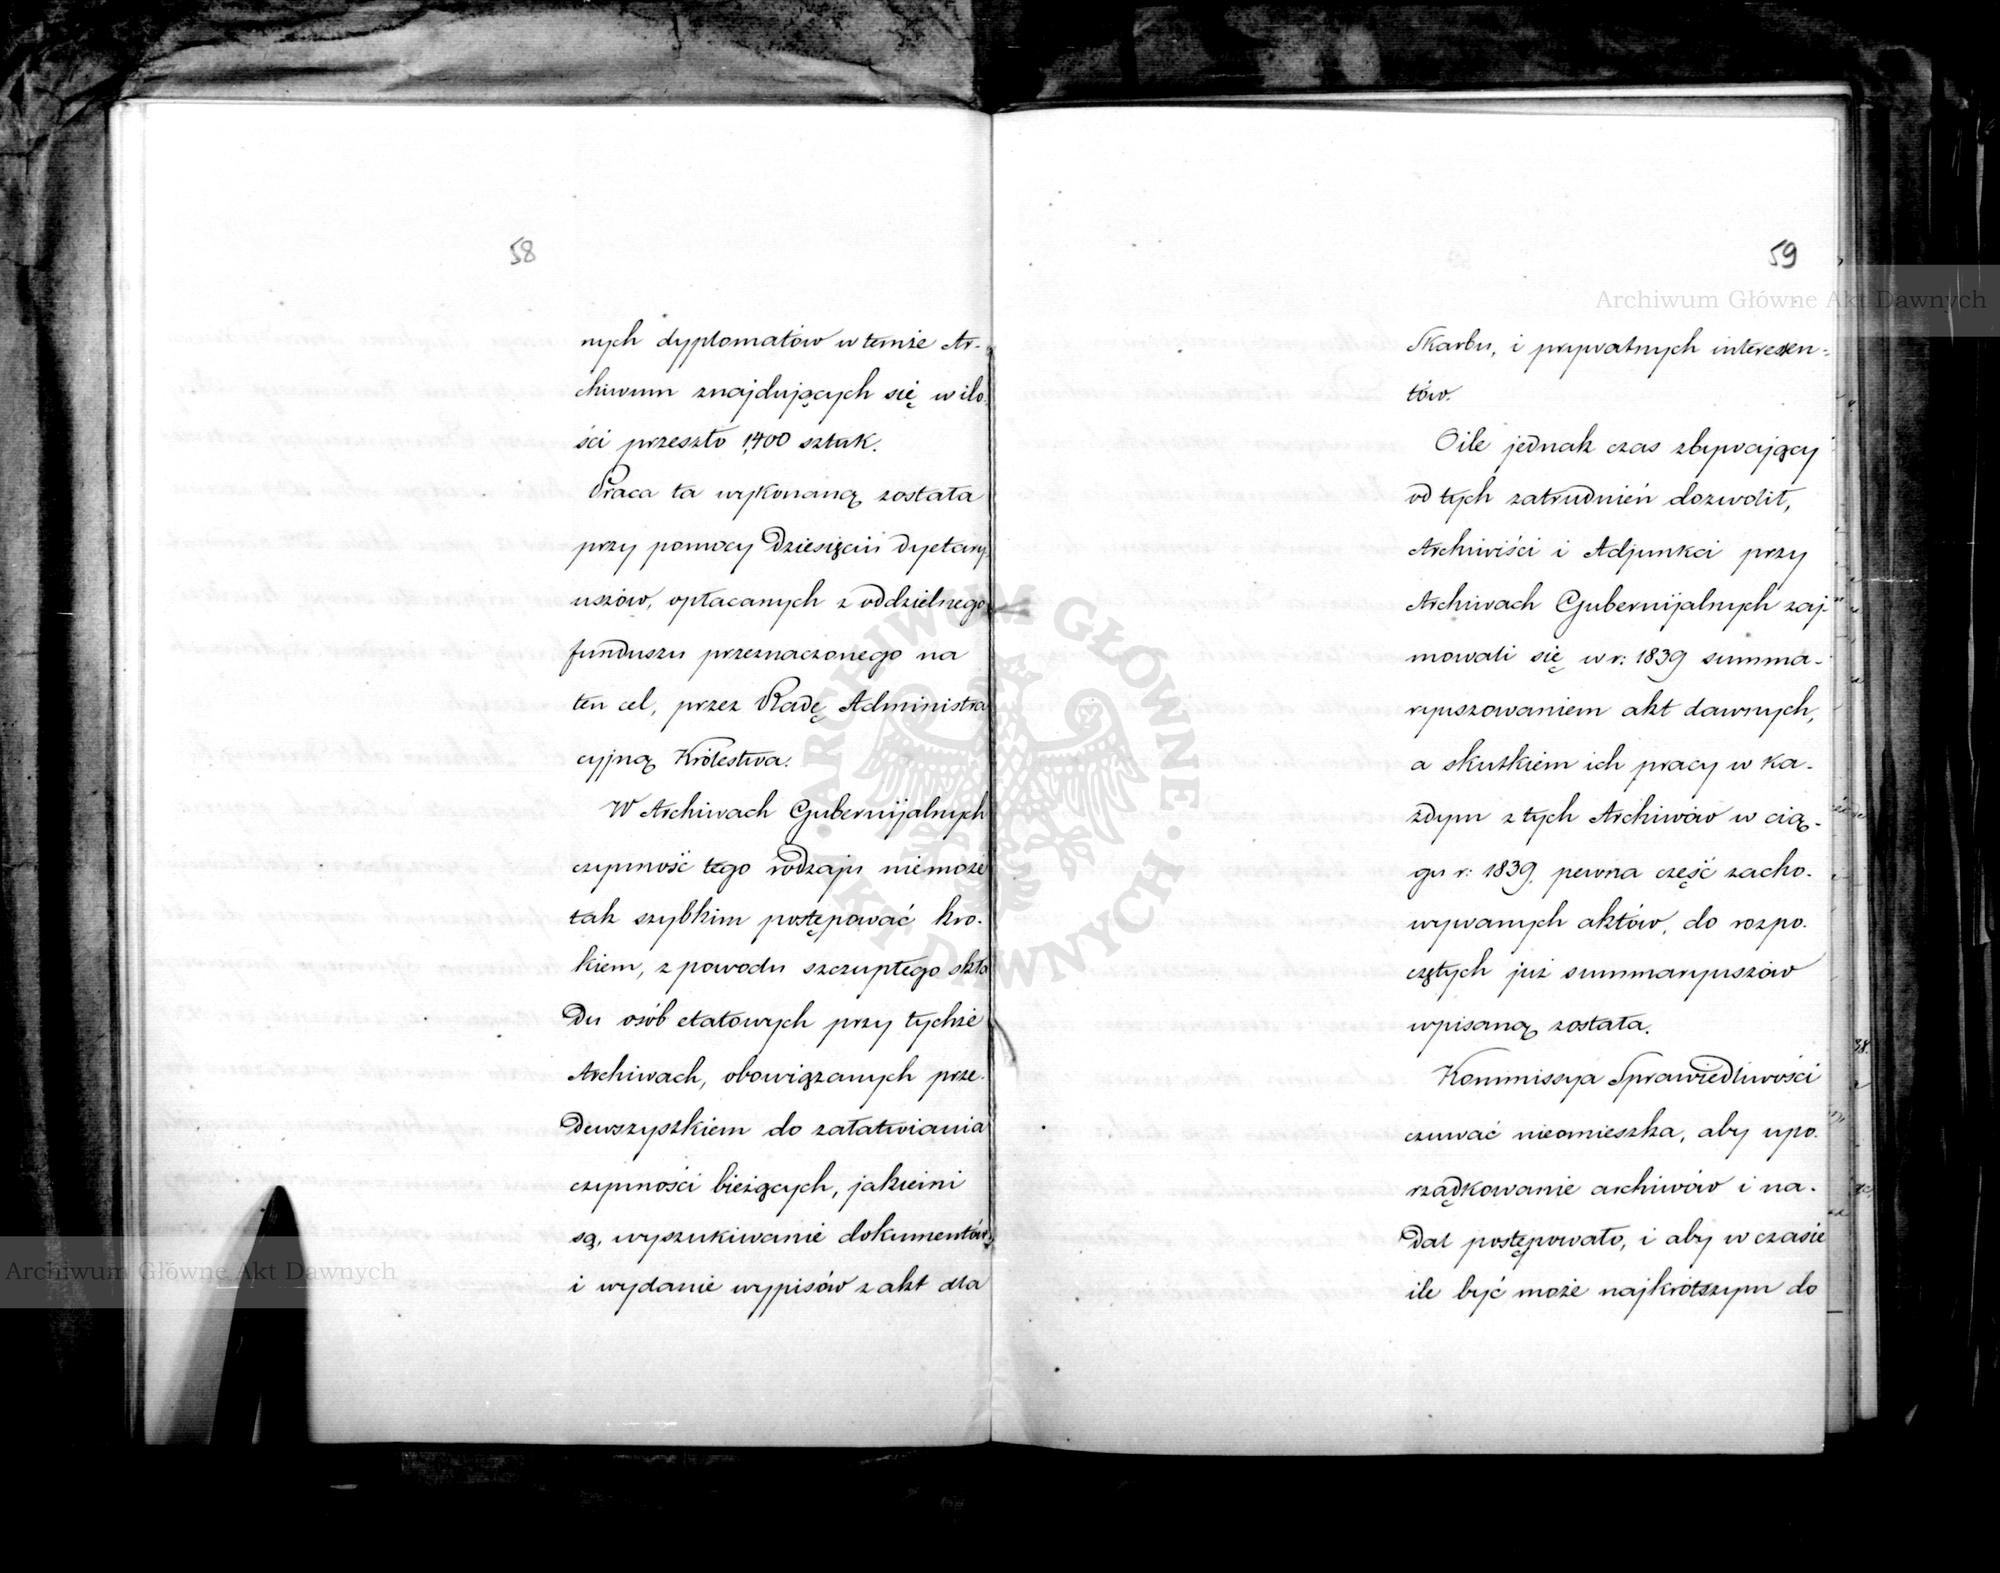 58
nych dyplomatów w temże Ar-
chiwum znajdujących się w ilo-
ści przeszło 1,400 sztuk.
Praca ta wykonaną została
przy pomocy Dziesięciu Dyetary
uszów, opłacanych z oddzielnego
funduszu przeznaczonego na
ten cel, przez Radę Administra
cyjną Królestwa.
W Archiwach Gubernijalnych
czynność tego rodzaju niemoże
tak szybkim postępować kro-
kiem, z powodu szczupłego skła
du osób etatowych przy tychże
Archiwach, obowiązanych prze-
dewszystkiem do załatwiania
czynności bieżących, jakiemi
są, wyszukiwanie dokumentów
i wydanie wypisów z akt dla
59
Skarbu, i prywatnych interesen-
tów.
Oile jednak czas zbywający
od tych zatrudnień dozwolił,
Archiwiści i Adjunkci przy
Archiwach Gubernijalnych zaj-
mowali się w r: 1839 summa-
ryuszowaniem akt dawnych,
a skutkiem ich pracy w ka-
żdym z tych Archiwów w cią-
gu r: 1839. pewna część zacho-
wywanych aktów, do rozpo-
czętych już summaryuszów
wpisaną została.
Kommissya Sprawiedliwości
czuwać nieomieszka, aby upo-
rządkowanie archiwów i na-
dal postępowało, i aby w czasie
ile być może najkrótszym do
Archiwum Główne Akt Dawnych
Archiwum Główne Akt Dawnych
ARCHIWUM GŁÓWNE AKT DAWNYCH